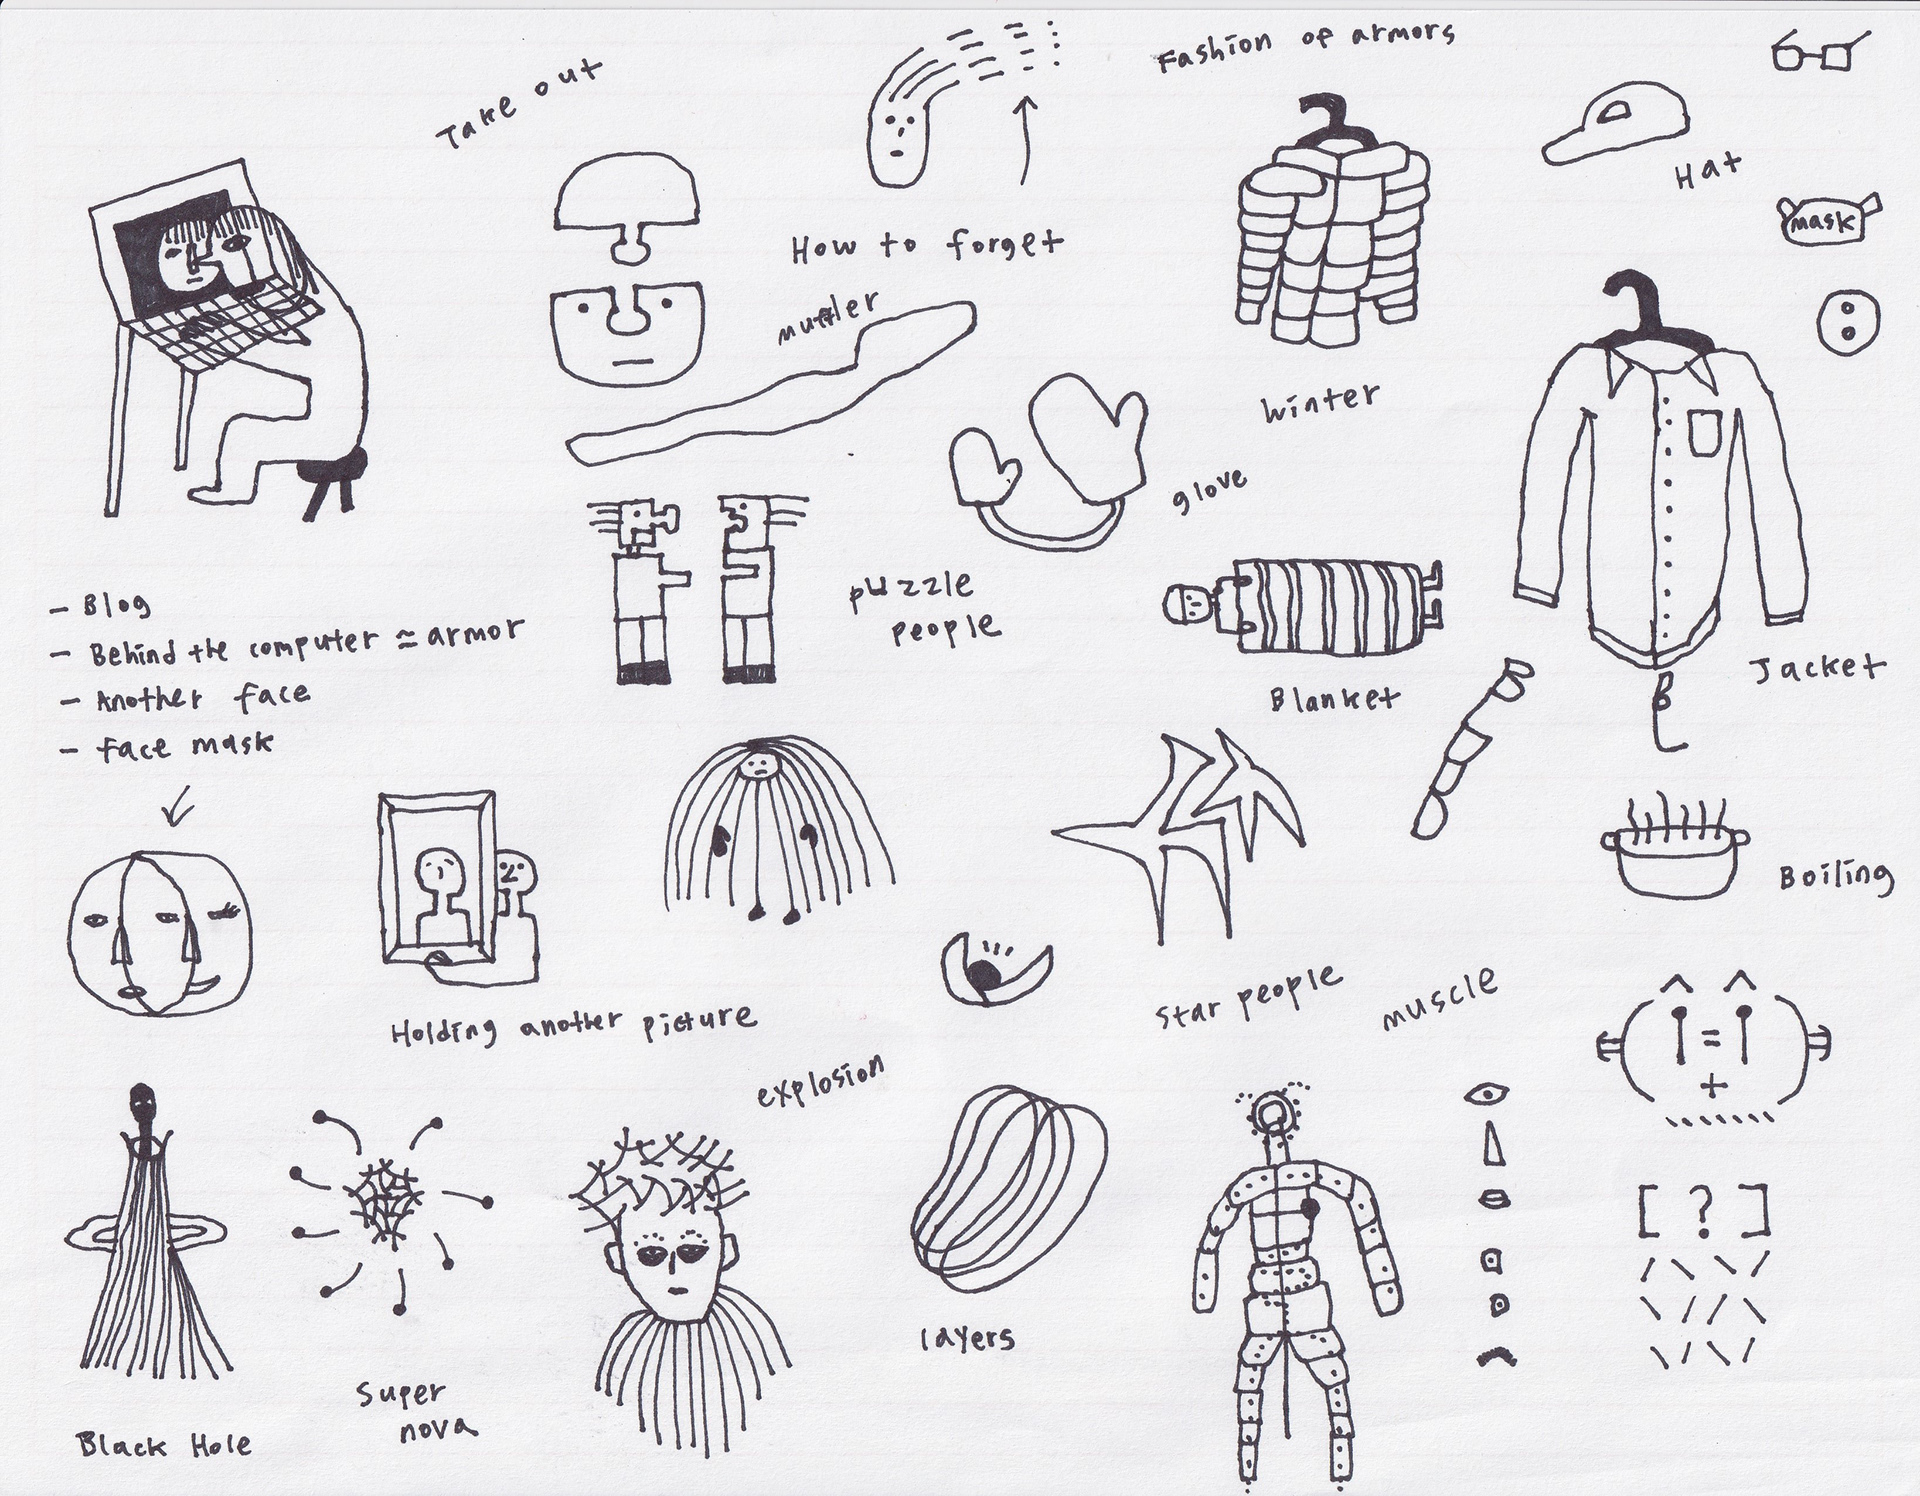 Take out
Fashion of armors
Hat
mask
How to forget
muffler
winter
glove
puzzle
people
Blanket
Jacket
- Blog
- Behind the computer ≃ armor
- Another face
- face mask
Boiling
Holding another picture
star people
muscle
explosion
layers
[ ? ]
Super
nova
Black Hole